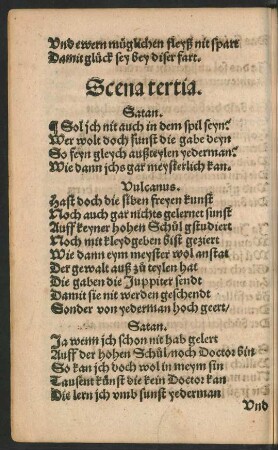 Vnd ewern müglichen fleyß nit spart
Damit glück sey bey diser fart.
Scena tertia.
Satan.
¶ Sol jch nit auch in dem spil seyn?
Wer wolt doch sunst die gabe deyn
So feyn gleych außteylen yederman?
Wie dann jchs gar meysterlich kan.
Vulcanus.
Hast doch die siben freyen kunst
Noch auch gar nichts gelernet sunst
Auff keyner hohen Schůl gstudiert
Noch mit kleyd geben bist geziert
Wie dann eym meyster wol anstat
Der gewalt auß zů teylen hat
Die gaben die Juppiter sendt
Damit sie nit werden geschendt
Sonder von yederman hoch geert/
Satan.
Ja wenn jch schon nit hab gelert
Auff der hohen Schůl/noch Doctor bin
So kan jch doch wol in meym sin
Tausent künst die kein Doctor kan
Die lern jch vmb sunst yederman
Vnd